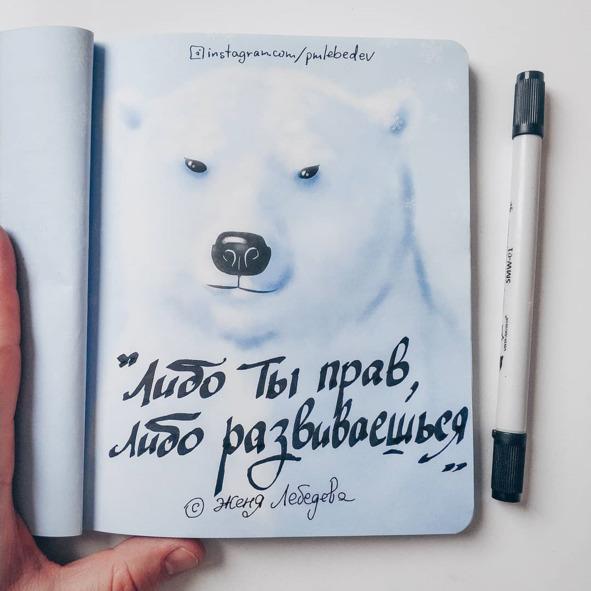 instagram.com/pmlebedev
"Либо Ты прав,
либо развиваешься"
© Женя Лебедева
SMW-01